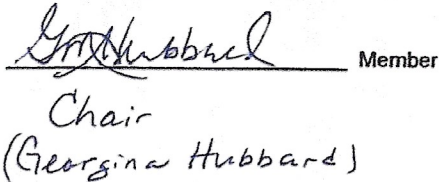 GM Hubbard Member
Chair
(Georgina Hubbard)